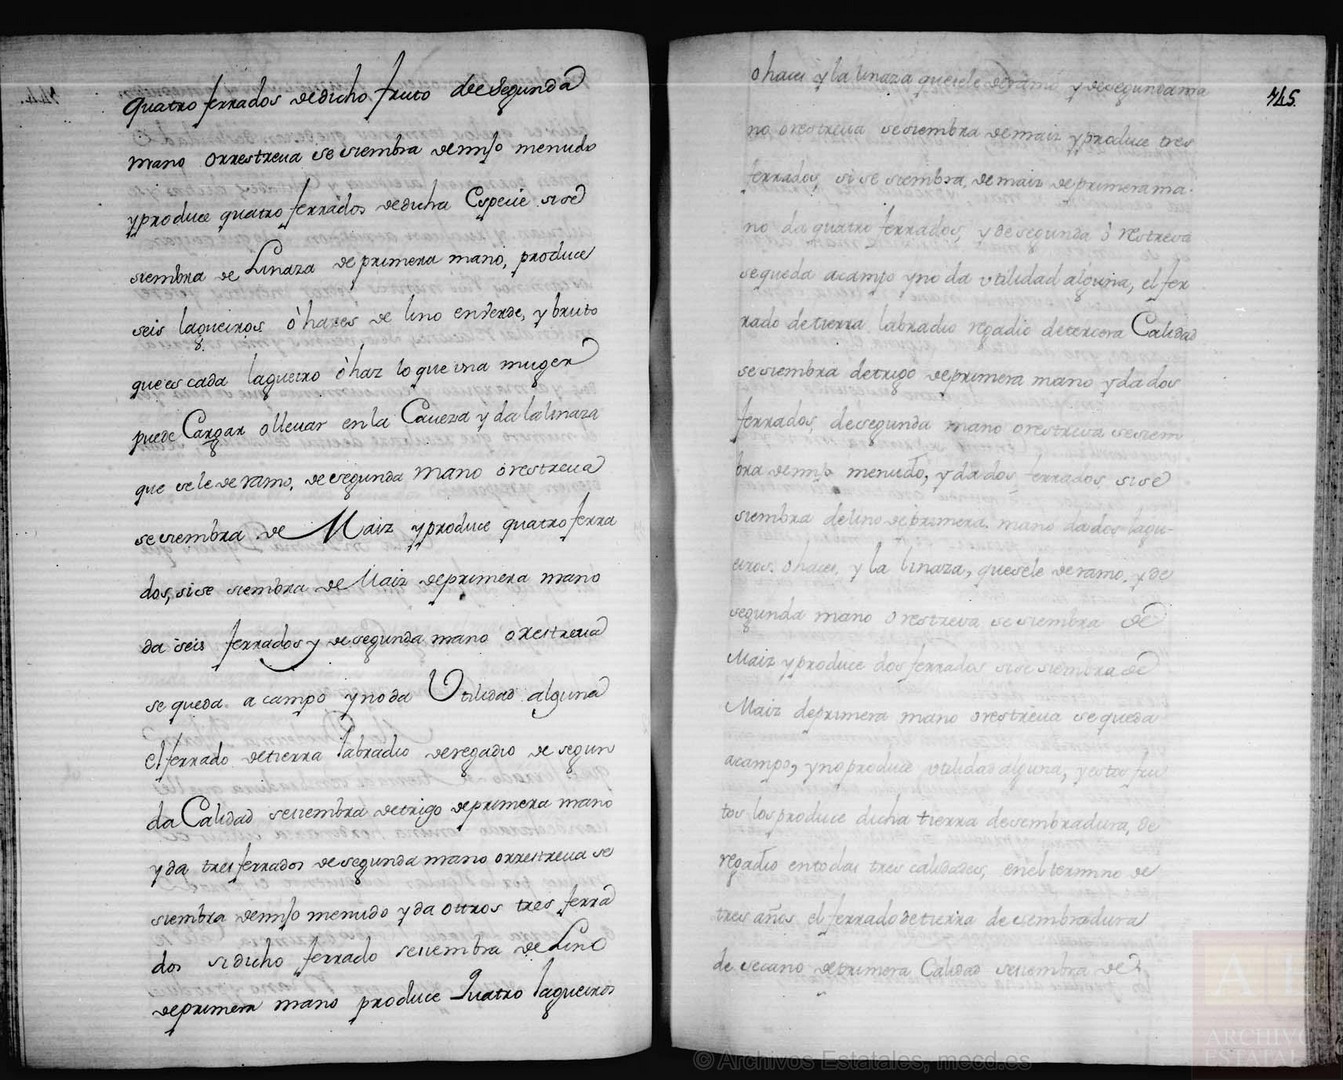 quatro ferrados de dicho fruto de segunda
mano o rrestreua se siembra de mijo menudo
y produce quatro ferrados de dicha Especie si se
siembra de Linaza de primera mano, produce
seis lagueiros ò hazes de lino en verde, y bruto
que es cada lagueiro ò haz lo que una muger
puede Cargar o lleuar en la Caueza y da la linaza
que se le de ramo, de segunda mano ò restreua
se siembra de Maiz y produce quatro ferra
dos, si se siembra de Maiz de primera mano
da seis ferrados y de segunda mano o restreua
se queda a campo y no da Vtilidad alguna
el ferrado de tierra labradio de regadio de segun
da Calidad se siembra de trigo de primera mano
y da tres ferrados de segunda mano o rrestreua se
siembra de mijo menudo y da ottros tres ferra
dos si dicho ferrado se siembra de Lino
de primera mano produce Quatro lagueiros
745.
o haces y la linaza que se le de ramo y de segunda ma
no o restreua se siembra de maiz y produce tres
ferrados, si se siembra de maiz de primera ma
no da quatro ferrados, y de segunda ò restreva
se queda a campo y no da vtilidad alguna, el fer
rado de tierra labradio regadio de tercera Calidad
se siembra de trigo de primera mano y da dos
ferrados de segunda mano o restreva se siem
bra de mijo menudo, y da dos ferrados si se
siembra de lino de primera mano da dos lagu-
eiros o haces y la linaza, que se le de ramo, y de
segunda mano o restreva se siembra de
Maiz y produce dos ferrados si se siembra de
Maiz de primera mano o restreua se queda
a campo, y no produce vtilidad alguna, y estos fru
tos los produce dicha tierra de sembradura, de
regadio en todas tres calidades, en el termino de
tres años, el ferrado de tierra de sembradura
de secano de primera Calidad se siembra de
© Archivos Estatales, mecd.es
ARCHIVOS
ESTATALES